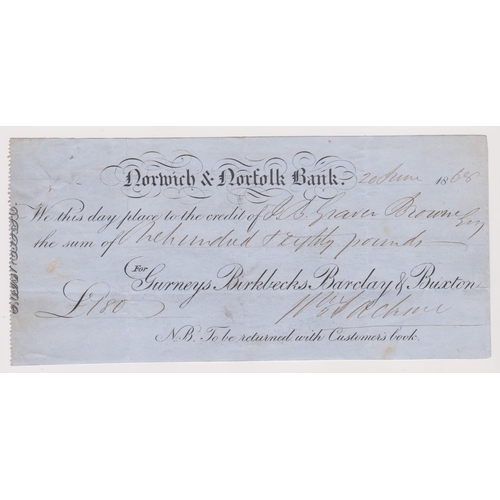 Norwich & Norfolk Bank. 20 June 1868
We this day place to the credit of Graver Browne Esq
the sum of One hundred & eighty pounds
For
Gurneys Birkbecks Barclay & Buxton
£180
Wm
N.B. To be returned with Customer's book.